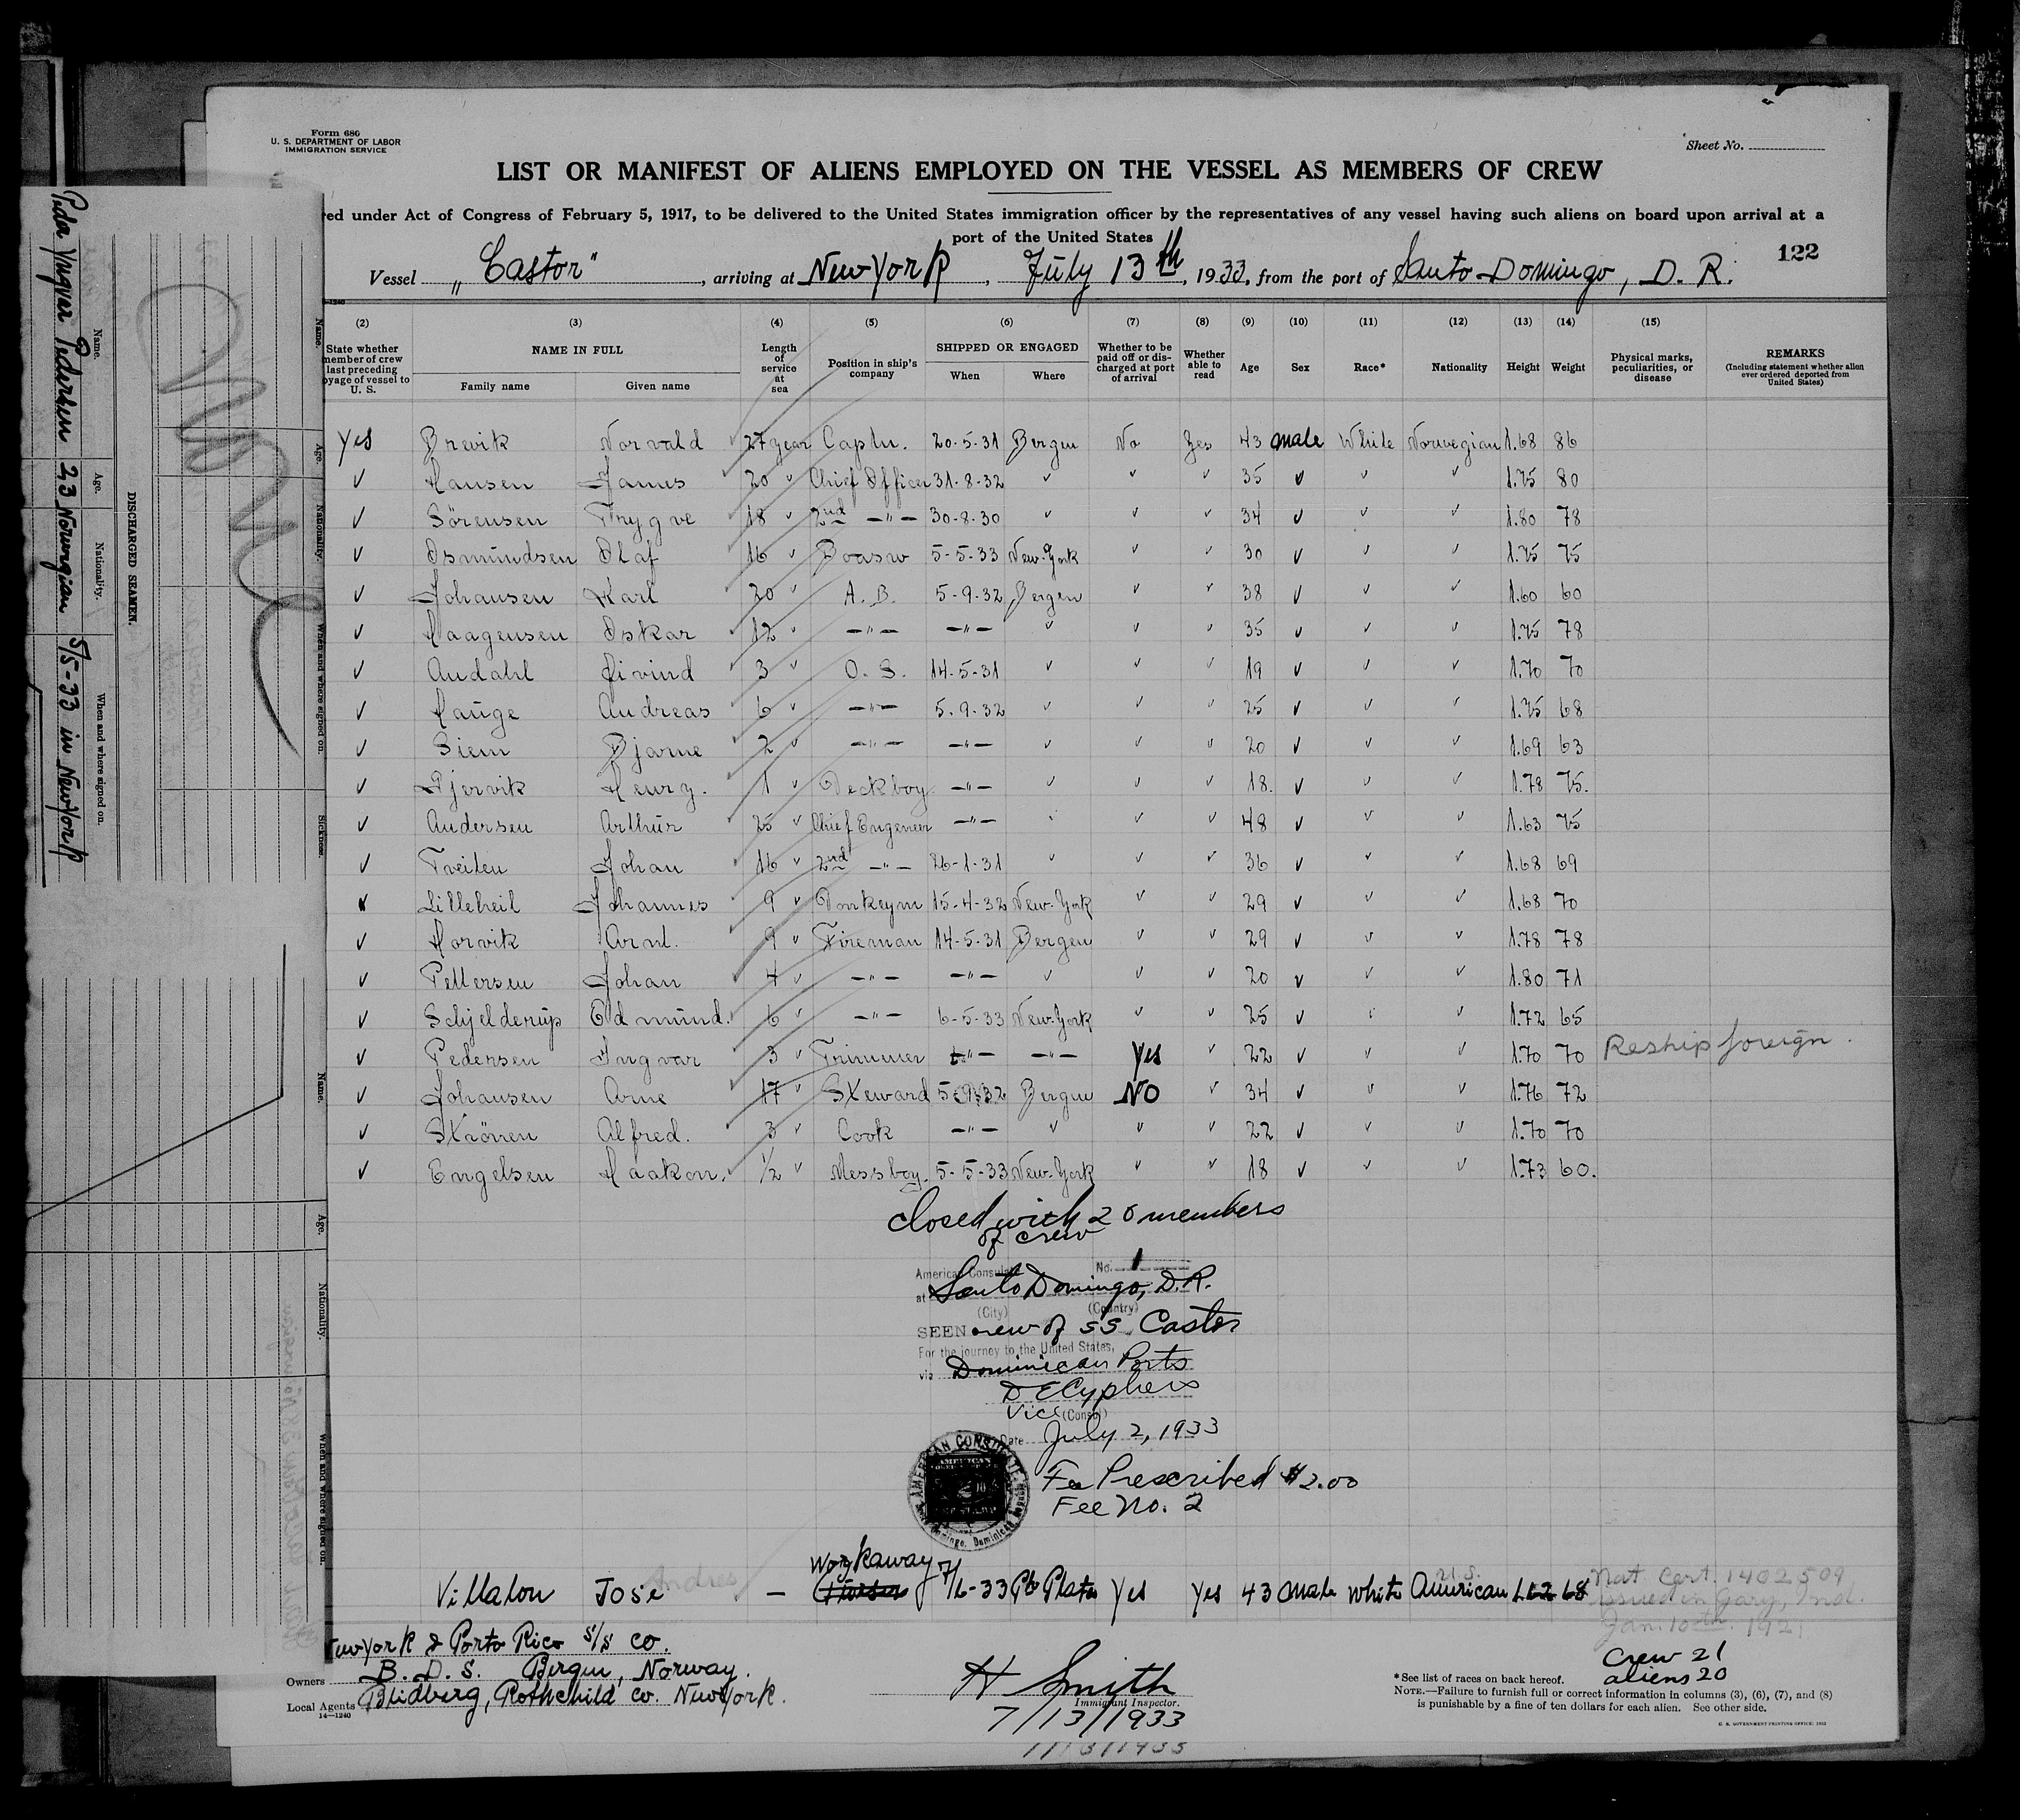 Form 680
U. S. DEPARTMENT OF LABOR
IMMIGRATION SERVICE
Sheet No.
LIST OR MANIFEST OF ALIENS EMPLOYED ON THE VESSEL AS MEMBERS OF CREW
red under Act of Congress of February 5, 1917, to be delivered to the United States immigration officer by the representatives of any vessel having such aliens on board upon arrival at a
port of the United States
122
Vessel „Castor", arriving at New York, July 13th, 1933, from the port of Santo Domingo, D. R.
(2) (3) (4) (5) (6) (7) (8) (9) (10) (11) (12) (13) (14) (15)
State whether member of crew last preceding oyage of vessel to U. S.
NAME IN FULL
Family name Given name
Length of service at sea
Position in ship's company
SHIPPED OR ENGAGED
When Where
Whether to be paid off or discharged at port of arrival
Whether able to read
Age Sex Race* Nationality Height Weight
Physical marks, peculiarities, or disease
REMARKS
(Including statement whether alien ever ordered deported from United States)
Yes Brevik Norvald 27 year Captn. 20-5-31 Bergen No Yes 43 male White Norwegian 1.68 86
✓ Hansen James 20 " Chief Officer 31-8-32 ✓ ✓ ✓ 35 ✓ ✓ ✓ 1.75 80
✓ Sörensen Trygve 18 " 2nd —"— 30-8-30 ✓ ✓ ✓ 34 ✓ ✓ ✓ 1.80 78
✓ Osmundsen Olaf 16 " Boasw 5-5-33 New-York ✓ ✓ 30 ✓ ✓ ✓ 1.75 75
✓ Johansen Karl 20 " A. B. 5-9-32 Bergen ✓ ✓ 38 ✓ ✓ ✓ 1.60 60
✓ Haagensen Oskar 12 " —"— —"— ✓ ✓ ✓ 35 ✓ ✓ ✓ 1.75 78
✓ Audahl Eivind 3 " O. S. 14-5-31 ✓ ✓ ✓ 19 ✓ ✓ ✓ 1.70 70
✓ Hauge Andreas 6 " —"— 5-9-32 ✓ ✓ ✓ 25 ✓ ✓ ✓ 1.75 68
✓ Siem Bjarne 2 " —"— —"— ✓ ✓ ✓ 20 ✓ ✓ ✓ 1.69 63
✓ Gjervik Henry. 1 " Deckboy —"— ✓ ✓ ✓ 18. ✓ ✓ ✓ 1.78 75.
✓ Andersen Arthur 25 " Chief Engeneer —"— ✓ ✓ 48 ✓ ✓ ✓ 1.63 75
✓ Treiten Johan 16 " 2nd —"— 26-1-31 ✓ ✓ ✓ 36 ✓ ✓ ✓ 1.68 69
✓ Lilleheil Johannes 9 " Donkeym 15-4-32 New-York ✓ ✓ 29 ✓ ✓ ✓ 1.68 70
✓ Horvik Arnt. 9 " Fireman 14-5-31 Bergen ✓ ✓ 29 ✓ ✓ ✓ 1.78 78
✓ Pettersen Johan 4 " —"— —"— ✓ ✓ ✓ 20 ✓ ✓ ✓ 1.80 71
✓ Schjelderup Edmund. 6 " —"— 6-5-33 New-York ✓ ✓ 25 ✓ ✓ ✓ 1.72 65
✓ Pedersen Ingvar 3 " Trimmer —"— —"— Yes ✓ 22 ✓ ✓ ✓ 1.70 70 Reship foreign.
✓ Johansen Arne 17 " Steward 5-9-32 Bergen NO ✓ 34 ✓ ✓ ✓ 1.76 72
✓ Strönen Alfred. 3 " Cook —"— ✓ ✓ ✓ 22 ✓ ✓ ✓ 1.70 70
✓ Engelsen Haakon. 1/2 " Messboy. 5-5-33 New-York ✓ ✓ 18 ✓ ✓ ✓ 1.73 60.
closed with 20 members
of crew
American Consulate No. 1
at Santo Domingo, D.R.
(City) (Country)
SEEN crew of SS. Castor
For the journey to the United States,
via Dominican Ports
D E Cyphers
Vice (Consul)
Date July 2, 1933
Fee Prescribed $2.00
Fee No. 2
Workaway
Villalon José Andres — 7/6-33 Pto Plata Yes Yes 43 male White U.S. American 1.62 68
Nat. Cert. 1402509
issued in Gary, Ind.
Jan. 10th 1921
ew York & Porto Rico S/S Co.
Owners B. D. S. Bergen, Norway.
Local Agents Blidberg, Rothchild Co. New York.
14—1240
H Smith
Immigrant Inspector.
7/13/1933
Crew 21
aliens 20
*See list of races on back hereof.
NOTE.—Failure to furnish full or correct information in columns (3), (6), (7), and (8)
is punishable by a fine of ten dollars for each alien. See other side.
U. S. GOVERNMENT PRINTING OFFICE: 1932
DISCHARGED SEAMEN.
Name. Age. Nationality. When and where signed on.
Pedersen 23 Norwegian 5/5-33 in New York
Name. Age. Nationality. When and where signed on. Sickness.
Name. Age. Nationality. When and where signed on.